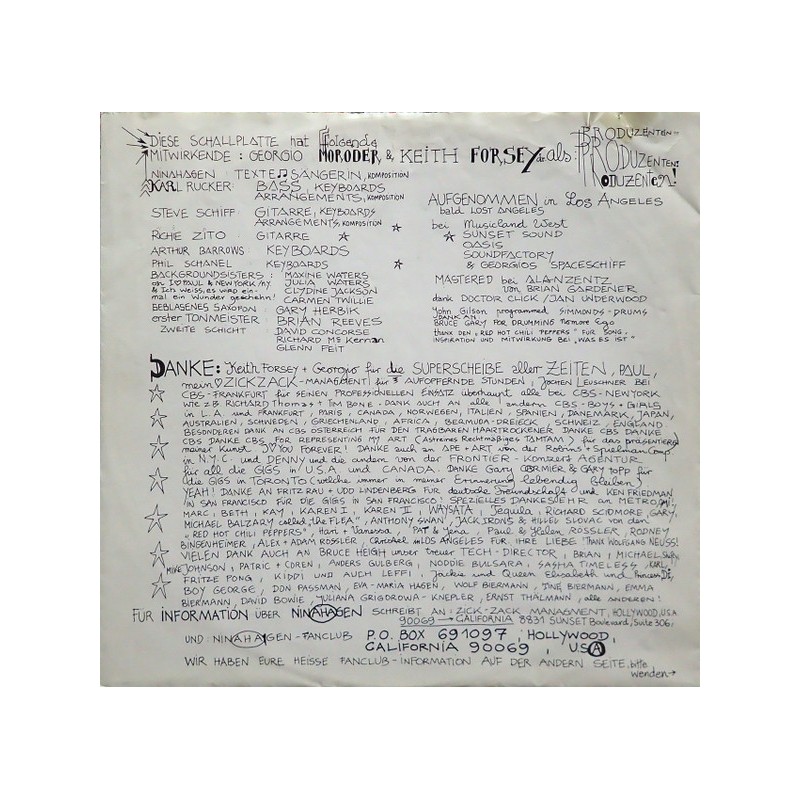 DIESE SCHALLPLATTE hat folgende
MITWIRKENDE : GEORGIO MORODER, & KEITH FORSEY als :
PRODUZENTEN
PRODUZENTEN:
PRODUZENTEN!
NINAHAGEN TEXTE SÄNGERIN, KOMPOSITION
KARL RUCKER : BASS, KEYBOARDS
ARRANGEMENTS, KOMPOSITION
STEVE SCHIFF : GITARRE, KEYBOARDS
ARRANGEMENTS, KOMPOSITION
RICHIE ZITO : GITARRE
ARTHUR BARROWS : KEYBOARDS
PHIL SCHANEL KEYBOARDS
BACKGROUNDSISTERS : MAXINE WATERS
on I ♡ PAUL & NEW YORK/NY JULIA WATERS
& Ich weiss, es wird ein- CLYDINE JACKSON
mal ein Wunder geschehn! CARMEN TWILLIE
BEBLASENES SAXOFON : GARY HERBIK
erster TONMEISTER : BRIAN REEVES
ZWEITE SCHICHT : DAVID CONCORSE
RICHARD Mc Kernan
GLENN FEIT
AUFGENOMMEN in Los ANGELES
bald LOST ANGELES
bei Musicland West
SUNSET SOUND
OASIS
SOUNDFACTORY
& GEORGIOS SPACESCHIFF
MASTERED bei ALAN ZENTZ
von BRIAN GARDENER
dank DOCTOR CLICK / JAN UNDERWOOD
John Gilson programmed SIMMONDS-DRUMS
DANK AN
BRUCE GARY FOR DRUMMING Ego
thank den „RED HOT CHILI PEPPERS" FÜR SONG,
INSPIRATION UND MITWIRKUNG BEI „WAS ES IST"
DANKE: Keith FORSEY + Georgio für die SUPERSCHEIBE aller ZEITEN, PAUL,
mein ♡ ZICKZACK-MANAGMENT für 3 AUFOPFERNDE STUNDEN, JOCHEN LEUSCHNER BEI
CBS-FRANKFURT für SEINEN PROFESSIONELLEN EINSATZ überhaupt, alle bei CBS-NEWYORK
WIE Z.B. RICHARD Thomas + TIM BONE. DANK AUCH AN alle andern CBS-BOYS + GIRLS
in L.A. und FRANKFURT, PARIS, CANADA, NORWEGEN, ITALIEN, SPANIEN, DANEMARK, JAPAN,
AUSTRALIEN, SCHWEDEN, GRIECHENLAND, AFRICA, BERMUDA-DREIECK, SCHWEIZ, ENGLAND
BESONDEREN DANK AN CBS ÖSTERREICH FÜR DEN TRAGBAREN HAARTROCKENER DANKE CBS DANKE
CBS DANKE CBS FOR REPRESENTING MY ART (Astreines Rechtmäßiges TAMTAM) für das präsentieren
meiner Kunst I ♡ YOU FOREVER! DANKE auch an APE + ART von der Robins + Spielman Comp.
in N.Y.C. und DENNY und die andern von der FRONTIER-Konzert AGENTUR
für all die GIGS in U.S.A und CANADA. DANKE Gary CORMIER & GARY TOPP für
die GIGS in TORONTO (welche immer in meiner Erinnerung lebendig bleiben)
YEAH! DANKE AN FRITZ RAU + UDO LINDENBERG FÜR deutsche Freundschaft und KEN FRIEDMAN
in SAN FRANCISCO FÜR DIE GIGS in SAN FRANCISCO! SPEZIELLES DANKESEHR an METRO
MARC, BETH, KAY, KAREN I, KAREN II, WAYSATA, Tequila, RICHARD SCIDMORE, GARY,
MICHAEL BALZARY called „the FLEA", ANTHONY SWAN, JACK IRONS & HILLEL SLOVAC von den
„RED HOT CHILI PEPPERS", Hari + Vanessa, PAT & Jena, Paul & Helen RÖSSLER, RODNEY
BINGENHEIMER, ALEX + ADAM RÖSSLER, Christiael in LOS ANGELES FÜR IHRE LIEBE! THANX WOLFGANG NEUSS!
VIELEN DANK AUCH AN BRUCE HEIGH unser treuer TECH-DIRECTOR, BRIAN, MICHAEL
MIKE JOHNSON, PATRIC + COREN, ANDERS GULBERG, NODDIE BULSARA, SASHA TIMELESS, KARL,
FRITZE FONG, KIDDI UND AUCH LEFFI, Jackie und Queen Elisabeth und Princess Di,
BOY GEORGE, DON PASSMAN, EVA-MARIA HAGEN, WOLF BIERMANN, TINE BIERMANN, EMMA
BIERMANN, DAVID BOWIE, JULIANA GRIGOROWA-KNEPLER, ERNST THÄLMANN, alle ANDEREN!
FÜR INFORMATION ÜBER NINAHAGEN SCHREIBT AN: ZICK-ZACK MANAGMENT, HOLLYWOOD, U.S.A.
90069 → CALIFORNIA 8831 SUNSET Boulevard, Suite 306;
UND: NINAHAGEN-FANCLUB P.O. BOX 691097, HOLLYWOOD,
CALIFORNIA 90069, USA
WIR HABEN EURE HEISSE FANCLUB-INFORMATION AUF DER ANDERN SEITE, bitte
wenden →